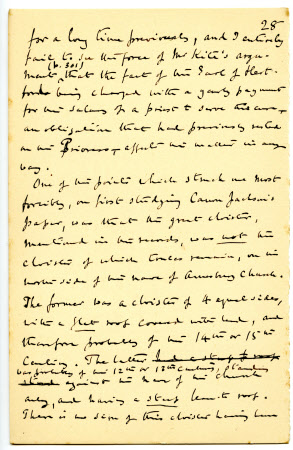 28
for a long time previously, and I entirely
fail to see the force of Mr Kite's argu-
(p. 301)
ment, that the fact of the Earl of Hert-
ford being charged with a yearly payment
for the salary of a priest to serve the cure,
an obligation that had previously rested
on the Prioress, affects the matter in any
way.
One of the points which struck me most
forcibly, on first studying Canon Jackson's
paper, was that the great cloister,
mentioned in the records, was not the
cloister of which traces remain, on the
north side of the nave of Amesbury Church.
The former was a cloister of 4 equal sides,
with a flat roof covered with lead, and
therefore probably of the 14th or 15th
Century. The latter
was probably of the 12th or 13th Century, standing
against the nave of the church
only, and having a steep lean-to roof.
There is no sign of this cloister having been